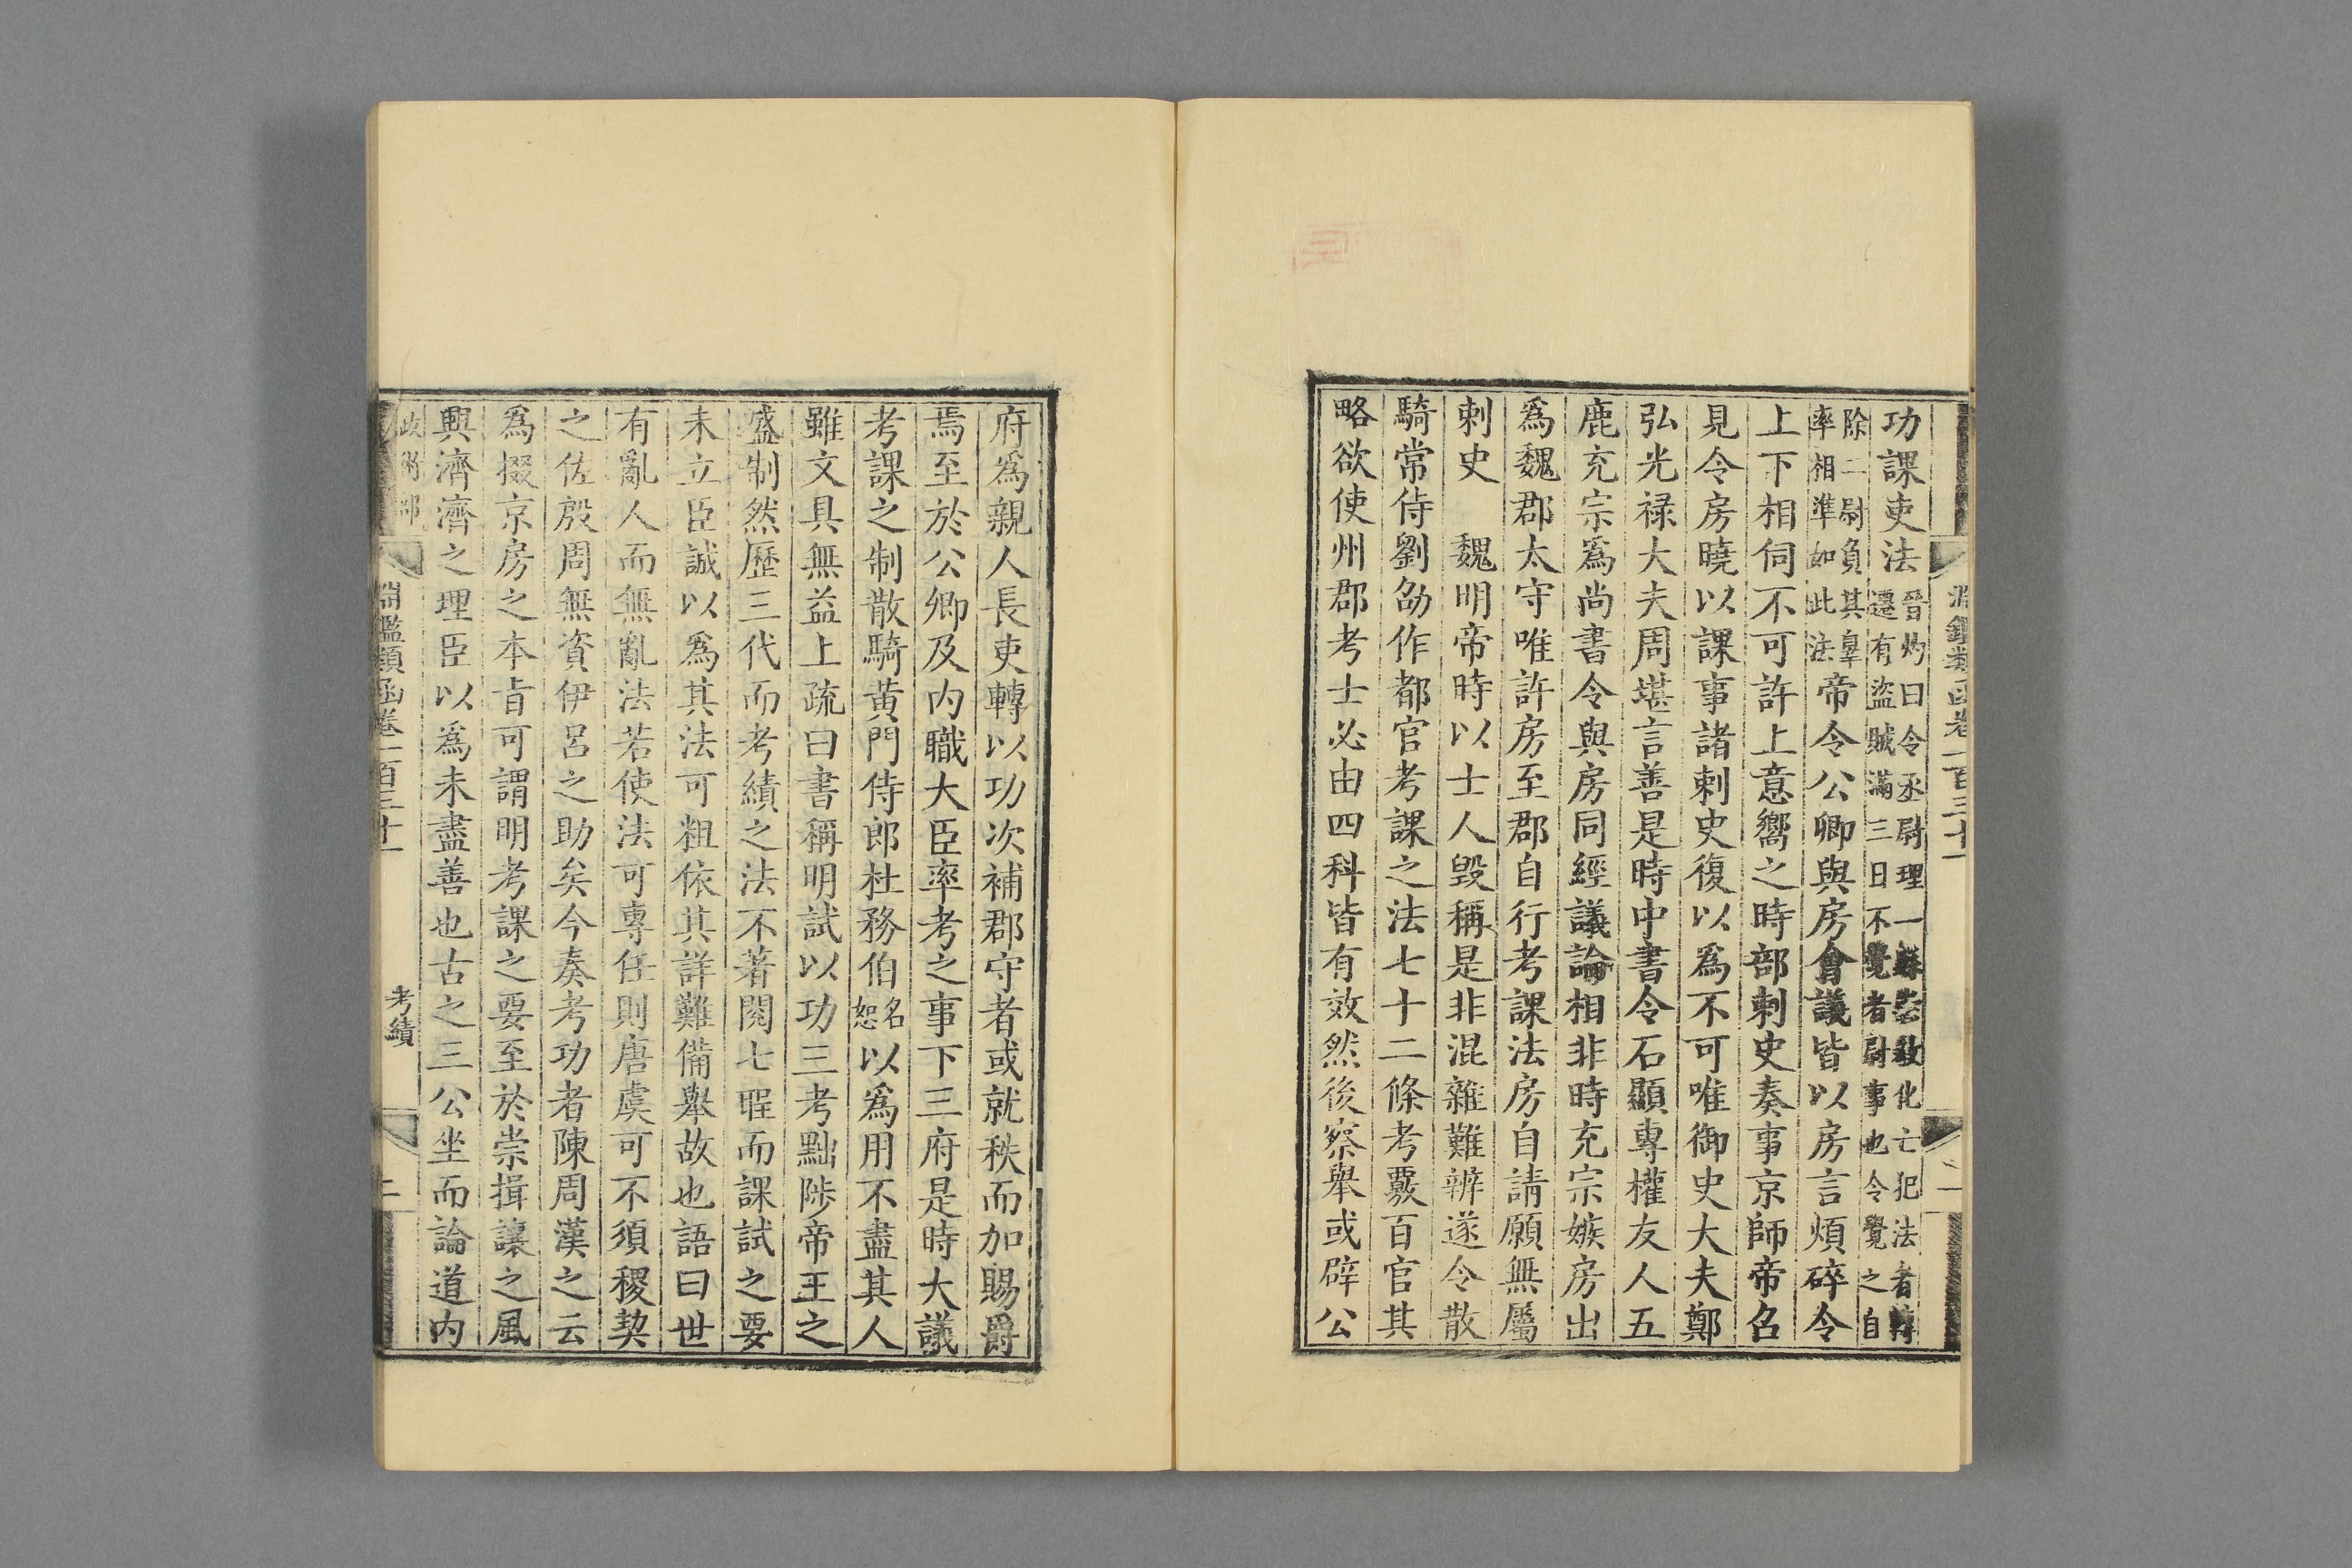 功課吏法晉灼曰令丞尉理一縣崇教化亡犯法者輒
遷有盜賊滿三日不覺者尉事也令覺之自
除二尉負其辠
率相準如此法帝令公卿與房會議皆以房言煩碎令
上下相伺不可許上意嚮之時部刺史奏事京師帝召
見令房曉以課事諸刺史復以爲不可唯御史大夫鄭
弘光禄大夫周堪言善是時中書令石顯專權友人五
鹿充宗爲尚書令與房同經議論相非時充宗嫉房出
爲魏郡太守唯許房至郡自行考課法房自請願無屬
刺史　魏明帝時以士人毀稱是非混雜難辨遂令散
騎常侍劉劭作都官考課之法七十二條考覈百官其
略欲使州郡考士必由四科皆有效然後察舉或辟公
府爲親人長吏轉以功次補郡守者或就秩而加賜爵
焉至於公卿及内職大臣率考之事下三府是時大議
考課之制散騎黄門侍郎杜務伯名恕以爲用不盡其人
雖文具無益上疏曰書稱明試以功三考黜陟帝王之
盛制然歷三代而考績之法不著閱七聖而課試之要
未立臣誠以爲其法可粗依其詳難備舉故也語曰世
有亂人而無亂法若使法可專任則唐虞可不須稷契
之佐殷周無資伊呂之助矣今奏考功者陳周漢之云
爲掇京房之本旨可謂明考課之要至於崇揖讓之風
興濟濟之理臣以爲未盡善也古之三公坐而論道内
政術部
淵鑑類函卷一百三十一
考績
二